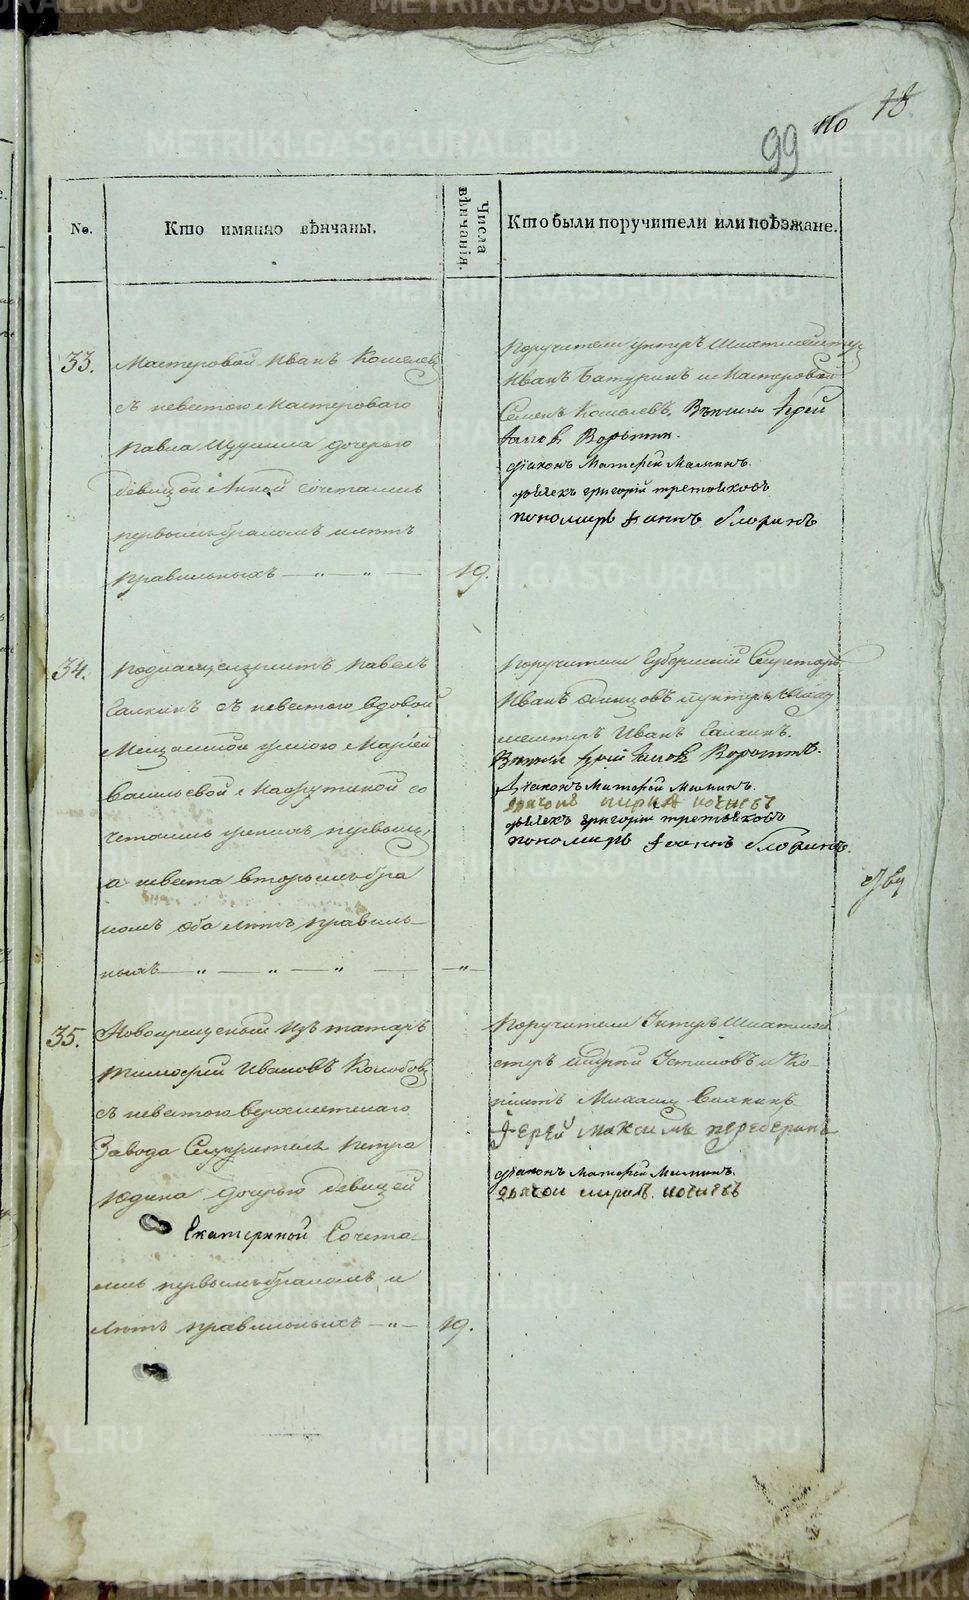 99 110 78
№. Кто имянно вѣнчаны. Числа вѣнчанія. Кто были поручители или поѣзжане.
33. Мастеровой Иванъ Кошелевъ
съ невестою Мастероваго
Павла дочерью
девицой Анной сочетались
первымъ бракомъ летъ
правильныхъ — „ — „ — 19.
Поручители унтеръ Шихтмейстеръ
Иванъ Батуринъ и Мастеровой
Семенъ Кошелевъ, Венчали Іерей
Іаковъ
діаконъ Матфей Маминъ.
дьячекъ григорій третьяковъ
пономарь Іоаннъ Флоринъ
34. Павелъ
Галкинъ съ невестою вдовой
Марьей
Васильевой со
четались женихъ первымъ,
а невеста вторымъ бра
комъ оба летъ правиль—
ныхъ — „ — „ — „ — — „ —
Поручители Губернскій Секретарь
Иванъ Одинцовъ и унтеръ Шихт
мейстеръ Иванъ Галкинъ.
Венчали Іерей Іаковъ
Діаконъ Матфей Маминъ.
дьячекъ григорій третьяковъ
пономарь Іоаннъ Флоринъ.
35. Новокрещеный изъ татаръ
Тимофей Ивановъ Колобовъ
съ невестою верхисетскаго
Завода Служителя Петра
Юдина дочерью девицей
Екатериной Сочета—
лись первымъ бракомъ и
летъ правильныхъ — „ — 19.
Поручители Унтеръ Шихтмей
стеръ Андрей Устиновъ и Ко—
піистъ Михаилъ
Іерей Максимъ
діаконъ Матфей Маминъ.